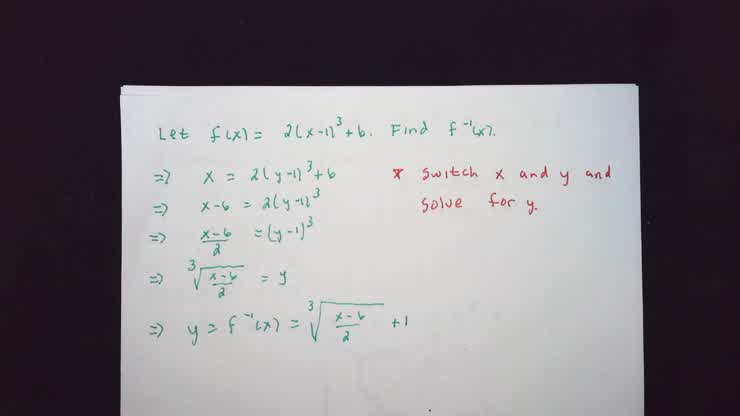 Let f(x) = 2(x-1)³+6. Find f⁻¹(x).
=> x = 2(y-1)³+6 * switch x and y and
=> x-6 = 2(y-1)³ solve for y.
=> \frac{x-6}{2} = (y-1)³
=> \sqrt[3]{\frac{x-6}{2}} = y
=> y = f⁻¹(x) = \sqrt[3]{\frac{x-6}{2}} +1